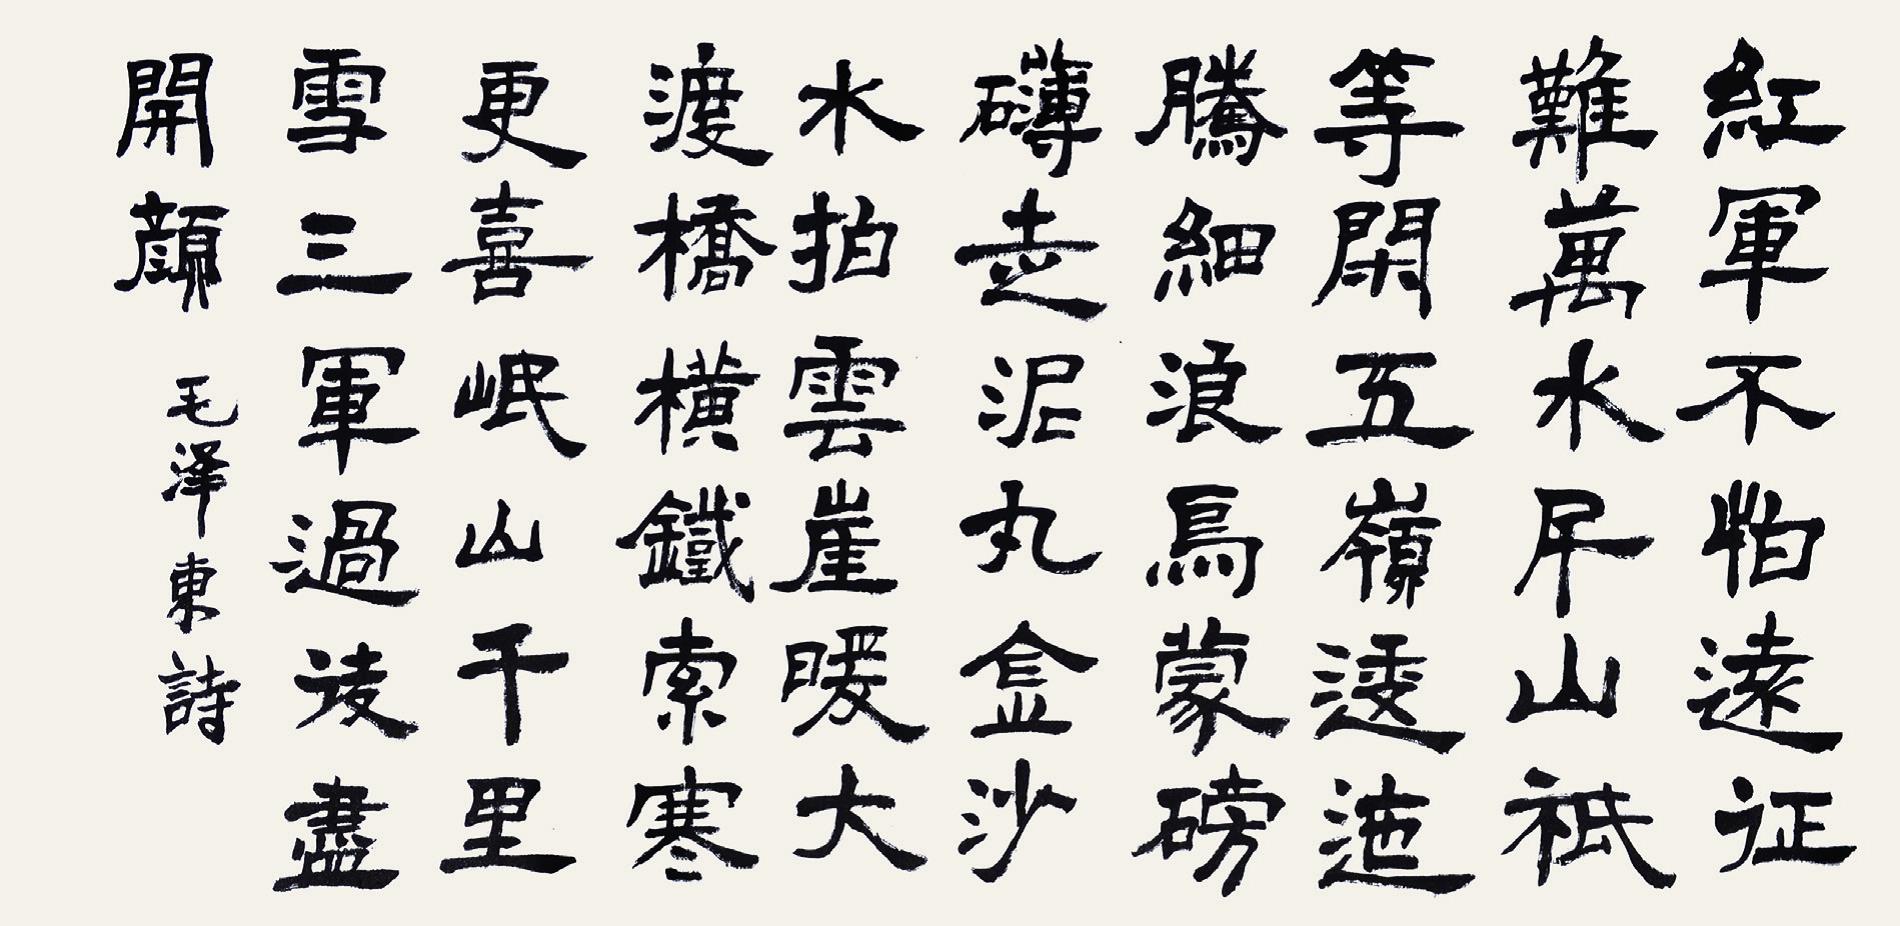 紅軍不怕遠征
難萬水千山祗
等閑五嶺逶迤
騰細浪烏蒙磅
礴走泥丸金沙
水拍雲崖暖大
渡橋橫鐵索寒
更喜岷山千里
雪三軍過後盡
開顔
毛泽東詩